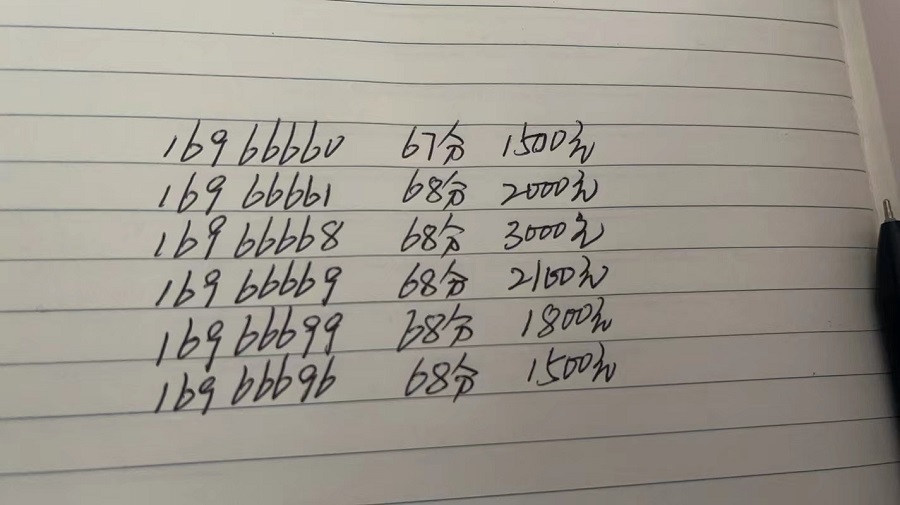 169 66660 67分 1500元
169 66661 68分 2000元
169 66668 68分 3000元
169 66669 68分 2100元
169 66699 68分 1800元
169 66696 68分 1500元